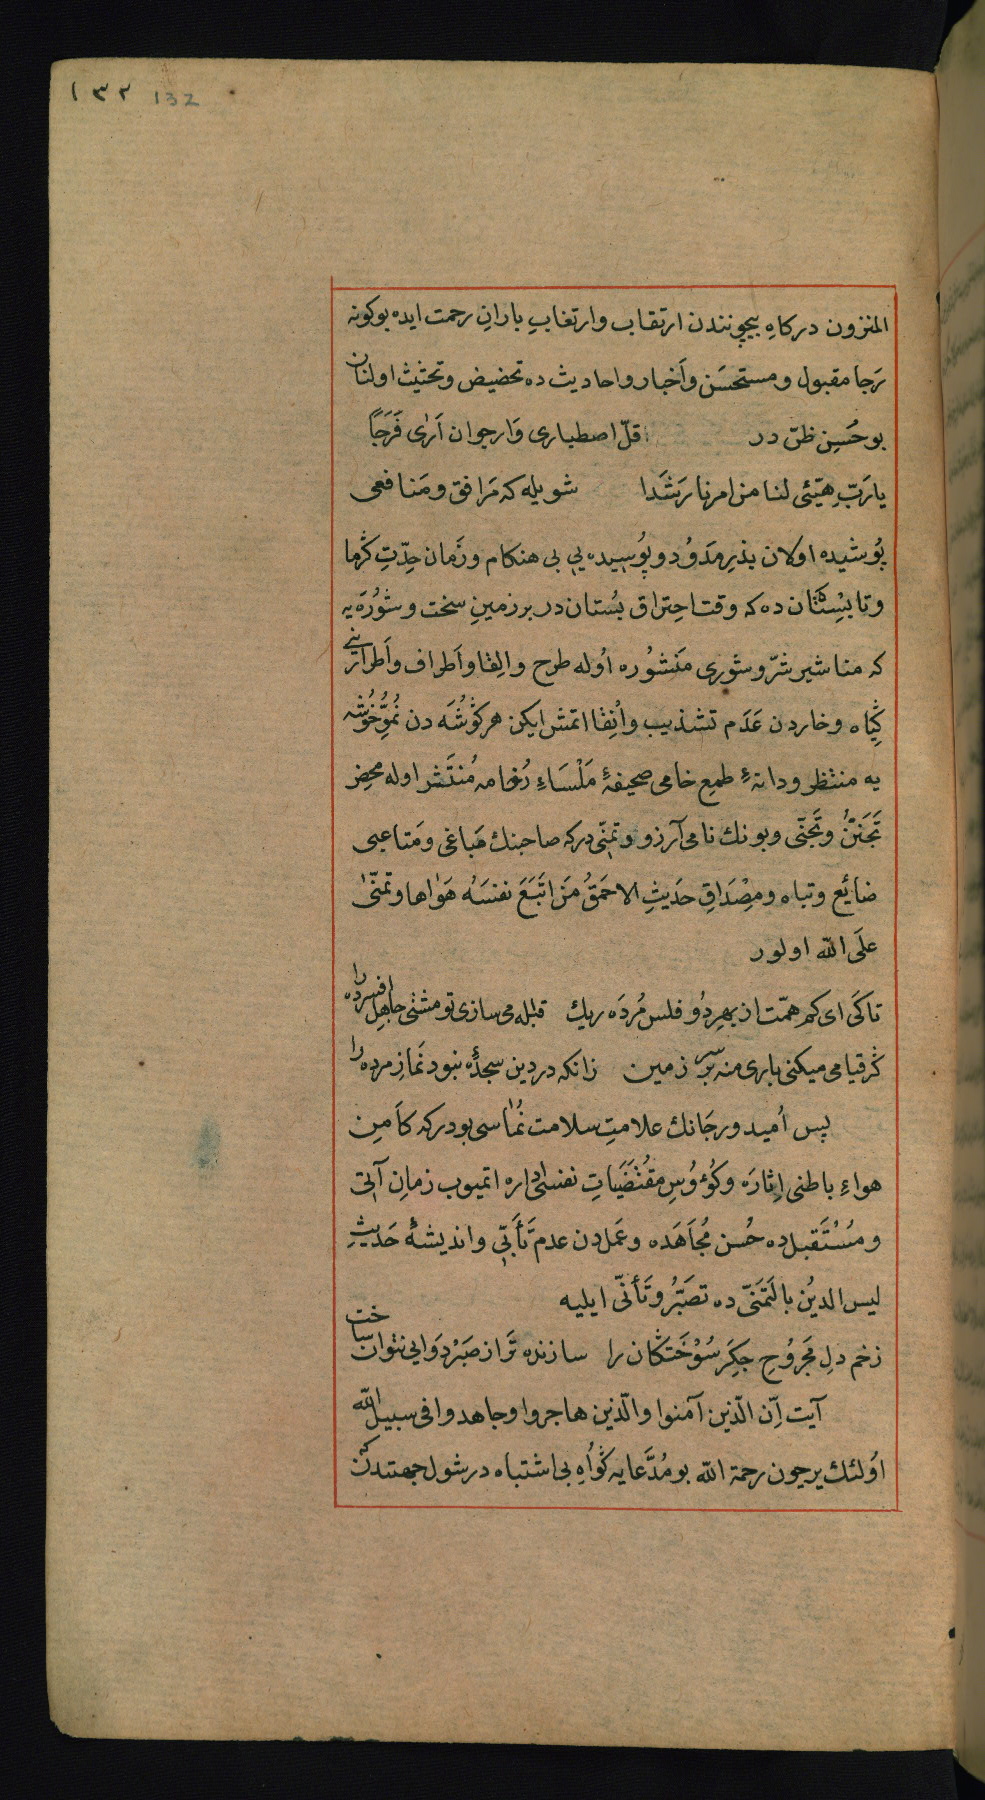 ١٣٢ 132
المنزون درکاهِ بیچونندن ارتقاب وارتغابِ بارانِ رحمت ایده بوکونه
رَجا مقبول ومستحسَن وأخبار واحادیث ده تحضیض وتحثیث اولنان
بوحُسنِ ظنّ در قلّ اصطباری وَارجوان اَرٰی فَرَجًا
یارَبِّ هَیّئی لنا من امرنا رَشَدا شویله که مَرافق ومَنافعی
پُوشیده اولان بذرِ مَدَوُد وپُوسیده یی بی هنکام وزَمان حِدّتِ کرما
وتابِسْتان ده که وقت احِتراق بُستان در برزمینِ سخت وشُورَه یه
که مناشیر شرّ وشوری مَنشُوره اوُله طرح والِقا واَطراف واَطرارنیے
کِیاه وخاردن عَدَم تشذیب واُنِقا اتمش ایکن هرکوُشَه دن نُمُوِّ خُوشه
یه منتظر ودانهٔ طمعِ خامی صحیفۀ مَلْسَاءِ رُخامه مُنتَثر اوله محضِ
تَجَنُّن وتَجَنّی وبونك نامی آرزو وتمنّی درکه صاحبنك مَباغی ومَتاعبی
ضائع وتباه ومِصْدَاقِ حَدیثِ الاحمَقُ مَن اتَبَعَ نفسَهُ هَوٰاها وتمنّٰی
علَی اللّٰه اولور
تاکَی ای کم همّت از بهرِ دُو فلس مُردَه ریك قبله می سازی تو مشتی جاهِل افسرده را
کرقیامی میکنی باری منه سر بر زمین زانکه در دین سجدۀ نبود نَمازِ مرده را
پس اُمید ورجَانك علامتِ سلامت نُماسی بودرکه کاَمِن
هواءِ باطنی اِثارَه وکُؤوُسِ مقُتَضَیَاتِ نفسی اداره اتمیوب زمانِ آتی
ومُسْتَقبلده حُسن مُجاَهَده وعَملدن عدم تَأَبّی واندیشهٔ حَدیثِ
لیس الدیُن بالَتمَنّی ده تصَبُّر وتَأَنّی ایلیه
زخم دلِ مَجرُوحِ جکِر سُوخَتکان را سازنده تَراز صَبْر دَوایی نتوان ساخت
آیت اِنّ الّذین آمنوا والّذین هاجروا وجاهدوا فی سبیل اللّٰه
اوُلئك یرجون رحمة اللّٰه بو مُدَّعایه کَوُاهِ بی اشتباه در شول جهتدن که